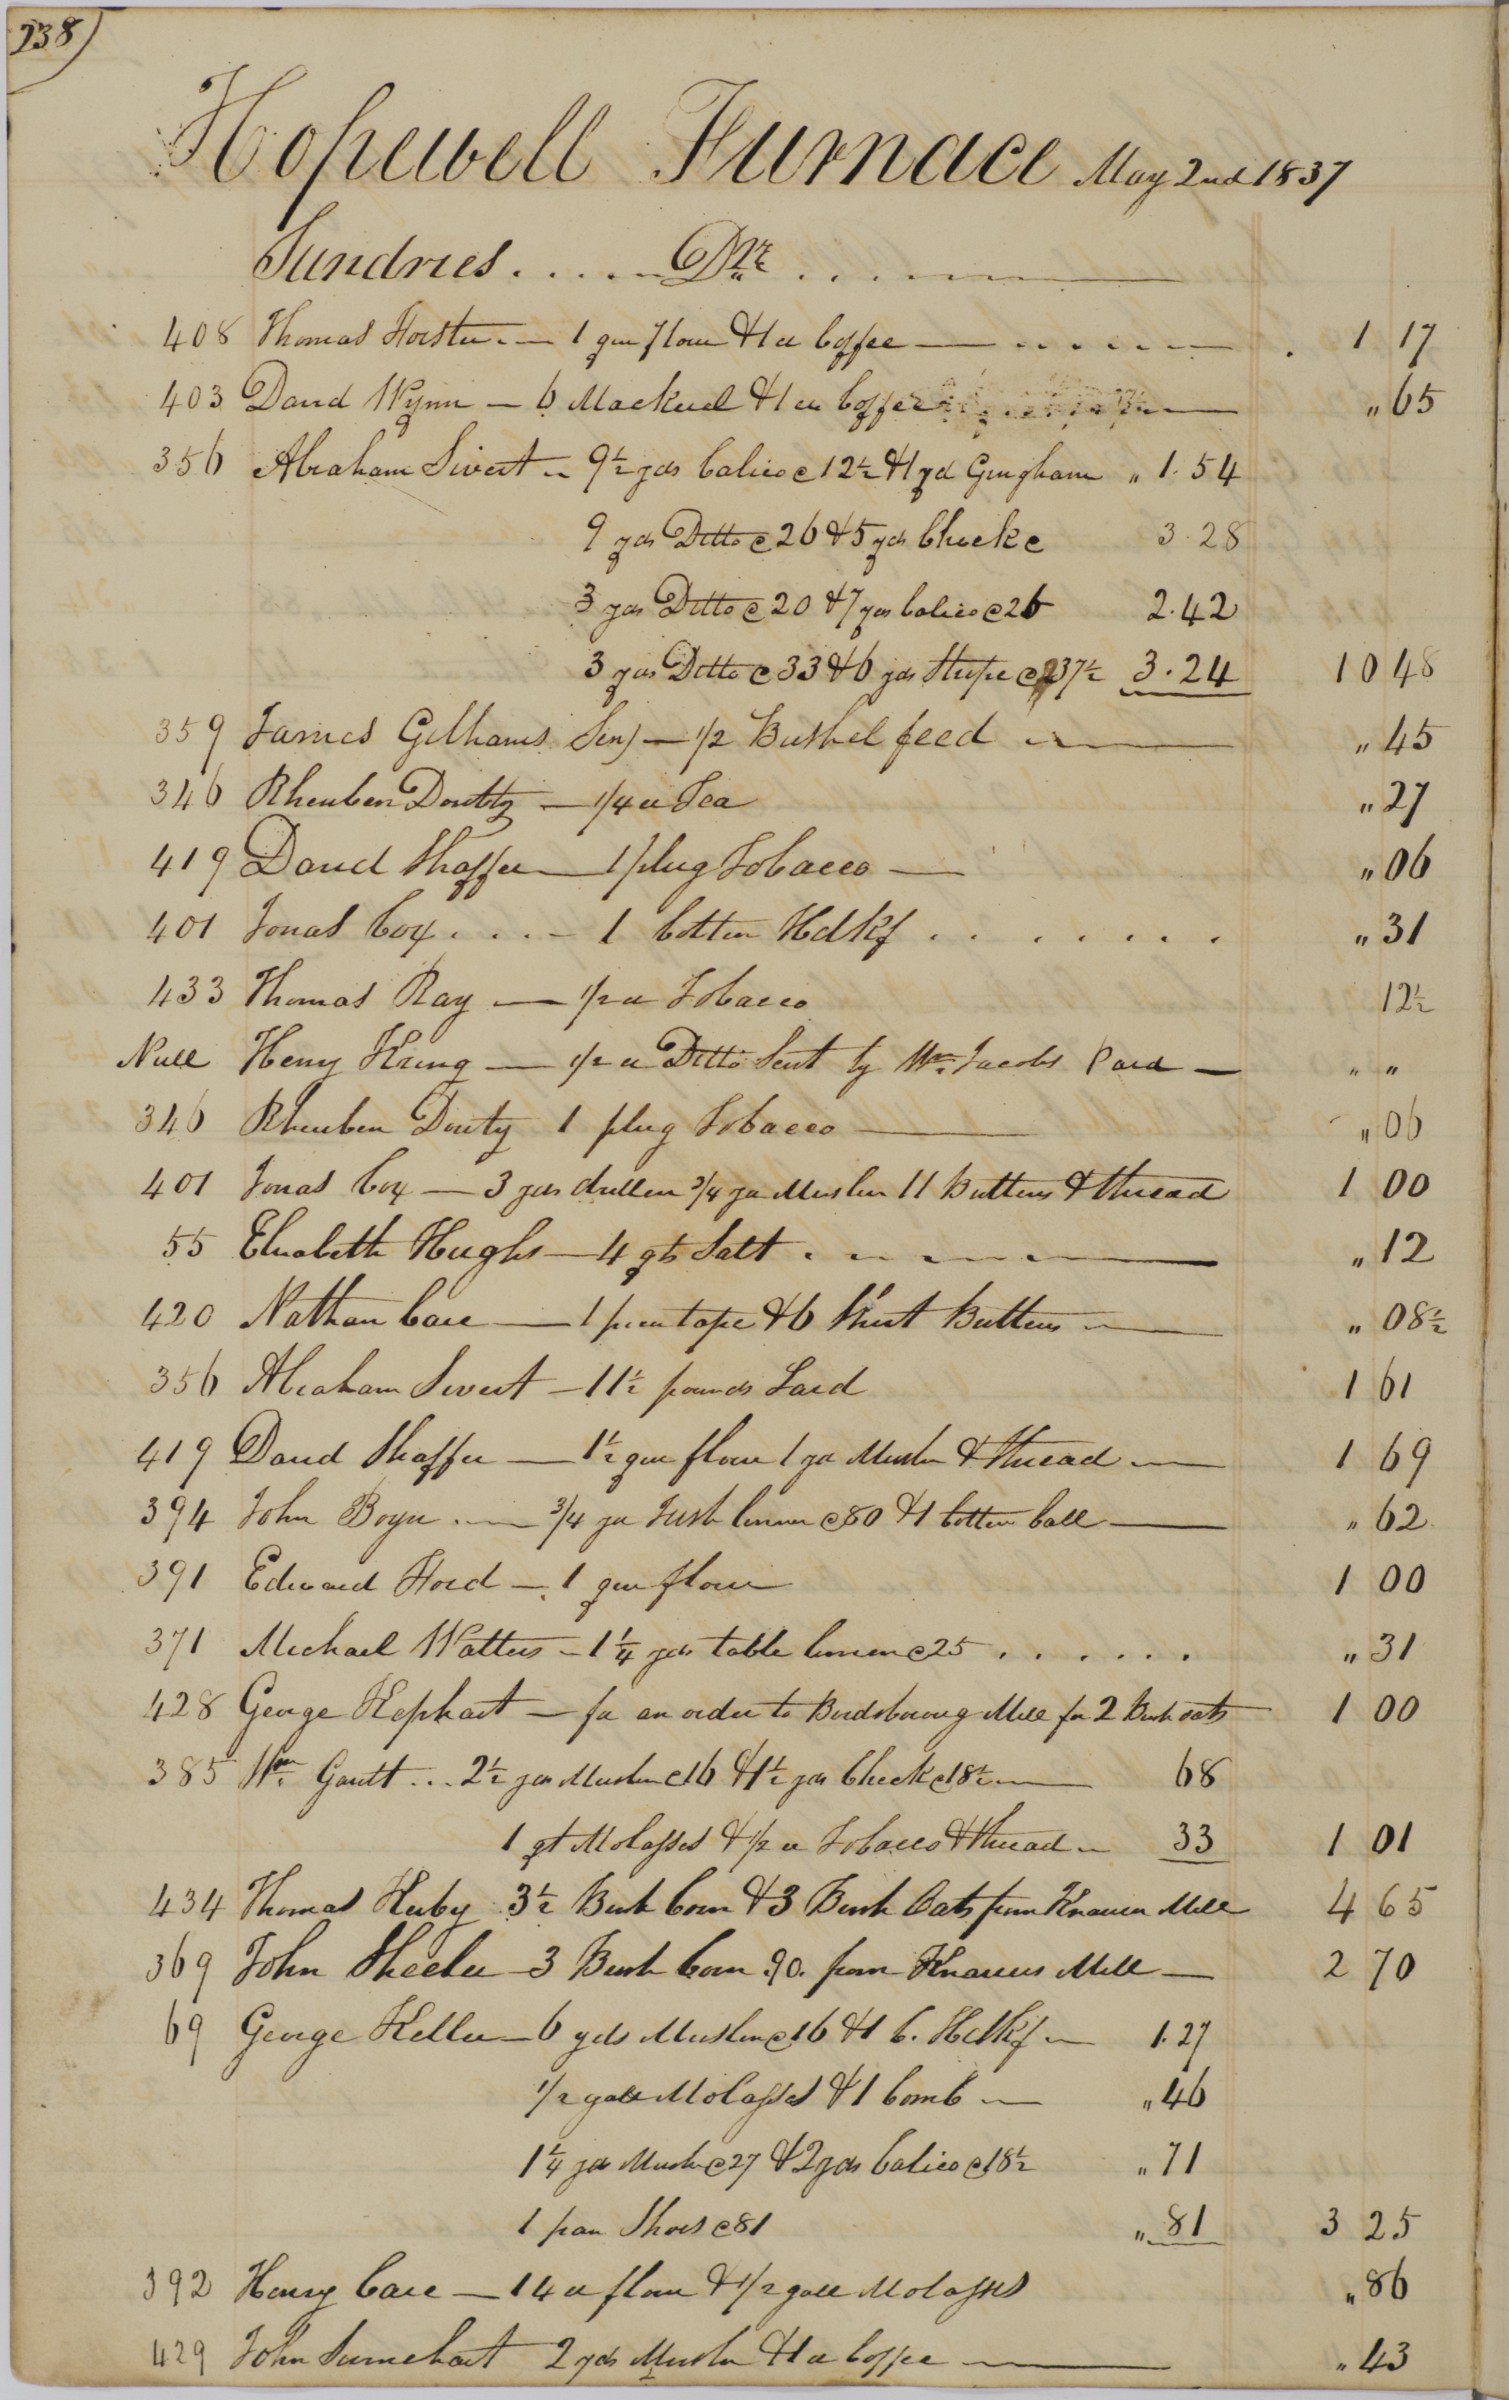 238)
Hopewell Furnace May 2nd 1837
Sundries . . . . . Dr . . .
408 Thomas Foster . — 1 qr flour & 1 ℔ Coffee — . . . . . — 1 17
403 David Wynn — 6 Mackerel & 1 ℔ Coffee — " 65
356 Abraham Sivert — 9½ yds Calico @ 12½ & 1 yd Gingham " 1.54
9 yds Ditto @ 26 & 5 yds Check @ 3.28
3 yds Ditto @ 20 & 7 yds Calico @ 26 2.42
3 yds Ditto @ 33 & 6 yds Stripe @ 37½ 3.24 10 48
359 James Gilhams Sen) — 1/2 Bushel feed — " 45
346 Rheuben Doutty — 1/4 ℔ Tea " 27
419 David Shaffer — 1 plug Tobacco — " 06
401 Jonas Cox . . . . — 1 Cotton Hdkf . . . . . . . " 31
433 Thomas Ray — 1/2 ℔ Tobacco 12½
Null Henry Kring — 1/2 ℔ Ditto Sent by Wm Jacobs Paid — " "
346 Rheuben Douty 1 plug Tobacco — " 06
401 Jonas Cox — 3 yds drillen 3/4 yd Muslin 11 Buttons & thread 1 00
55 Elizabeth Hughs — 4 qts Salt . — " 12
420 Nathan Care — 1 piece tape & 6 Shirt Buttons — " 08½
356 Abraham Sivert — 11½ pounds Lard 1 61
419 David Shaffer — 1½ qr flour 1 yd Muslin & thread — 1 69
394 John Boyer . — 3/4 yd Irish linnen @ 80 & 1 Cotton ball — " 62
391 Edward Hord — 1 qr flour 1 00
371 Michael Watters — 1¼ yds table linnen @ 25 . . . . . . " 31
428 George Kephart — for an order to Birdsbouroug Mill for 2 Bush oats 1 00
385 Wm Gantt . . . 2½ yds Muslin @ 16 & 1½ yds Check @ 18½ — 68
1 qt Molasses & 1/2 ℔ Tobacco & thread — 33 1 01
434 Thomas Kirby 3½ Bush Corn & 3 Bush Oats from Knauers Mill 4 65
369 John Sheeler — 3 Bush Corn .90. from Knauers Mill — 2 70
69 George Keller — 6 yds Muslin @ 16 & 1 C. Hdkf — 1.27
1/2 gall Molasses & 1 Comb — " 46
1¼ yds Muslin @ 27 & 2 yds Calico @ 18½ " 71
1 pair Shoes @ 81 " 81 3 25
392 Henry Care — 14 ℔ flour & 1/2 gall Molasses " 86
429 John Sumehart 2 yds Muslin & 1 ℔ Coffee — " 43